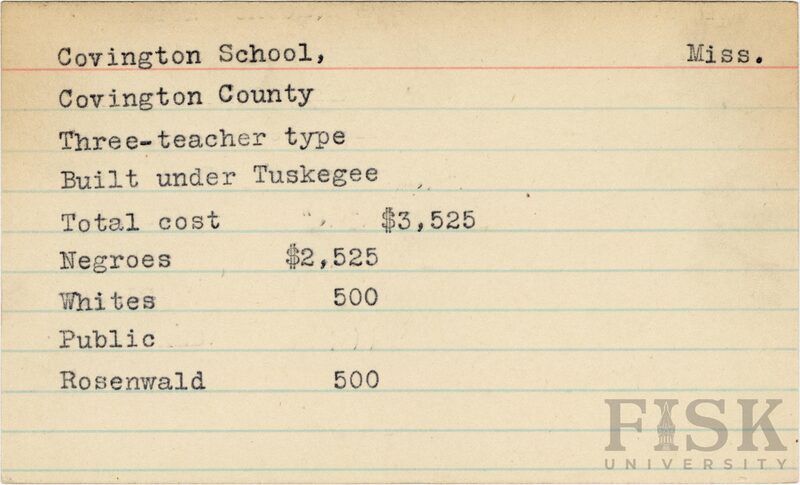 Covington School, Miss.
Covington County
Three-teacher type
Built under Tuskegee
Total cost $3,525
Negroes $2,525
Whites 500
Public
Rosenwald 500
FISK
UNIVERSITY